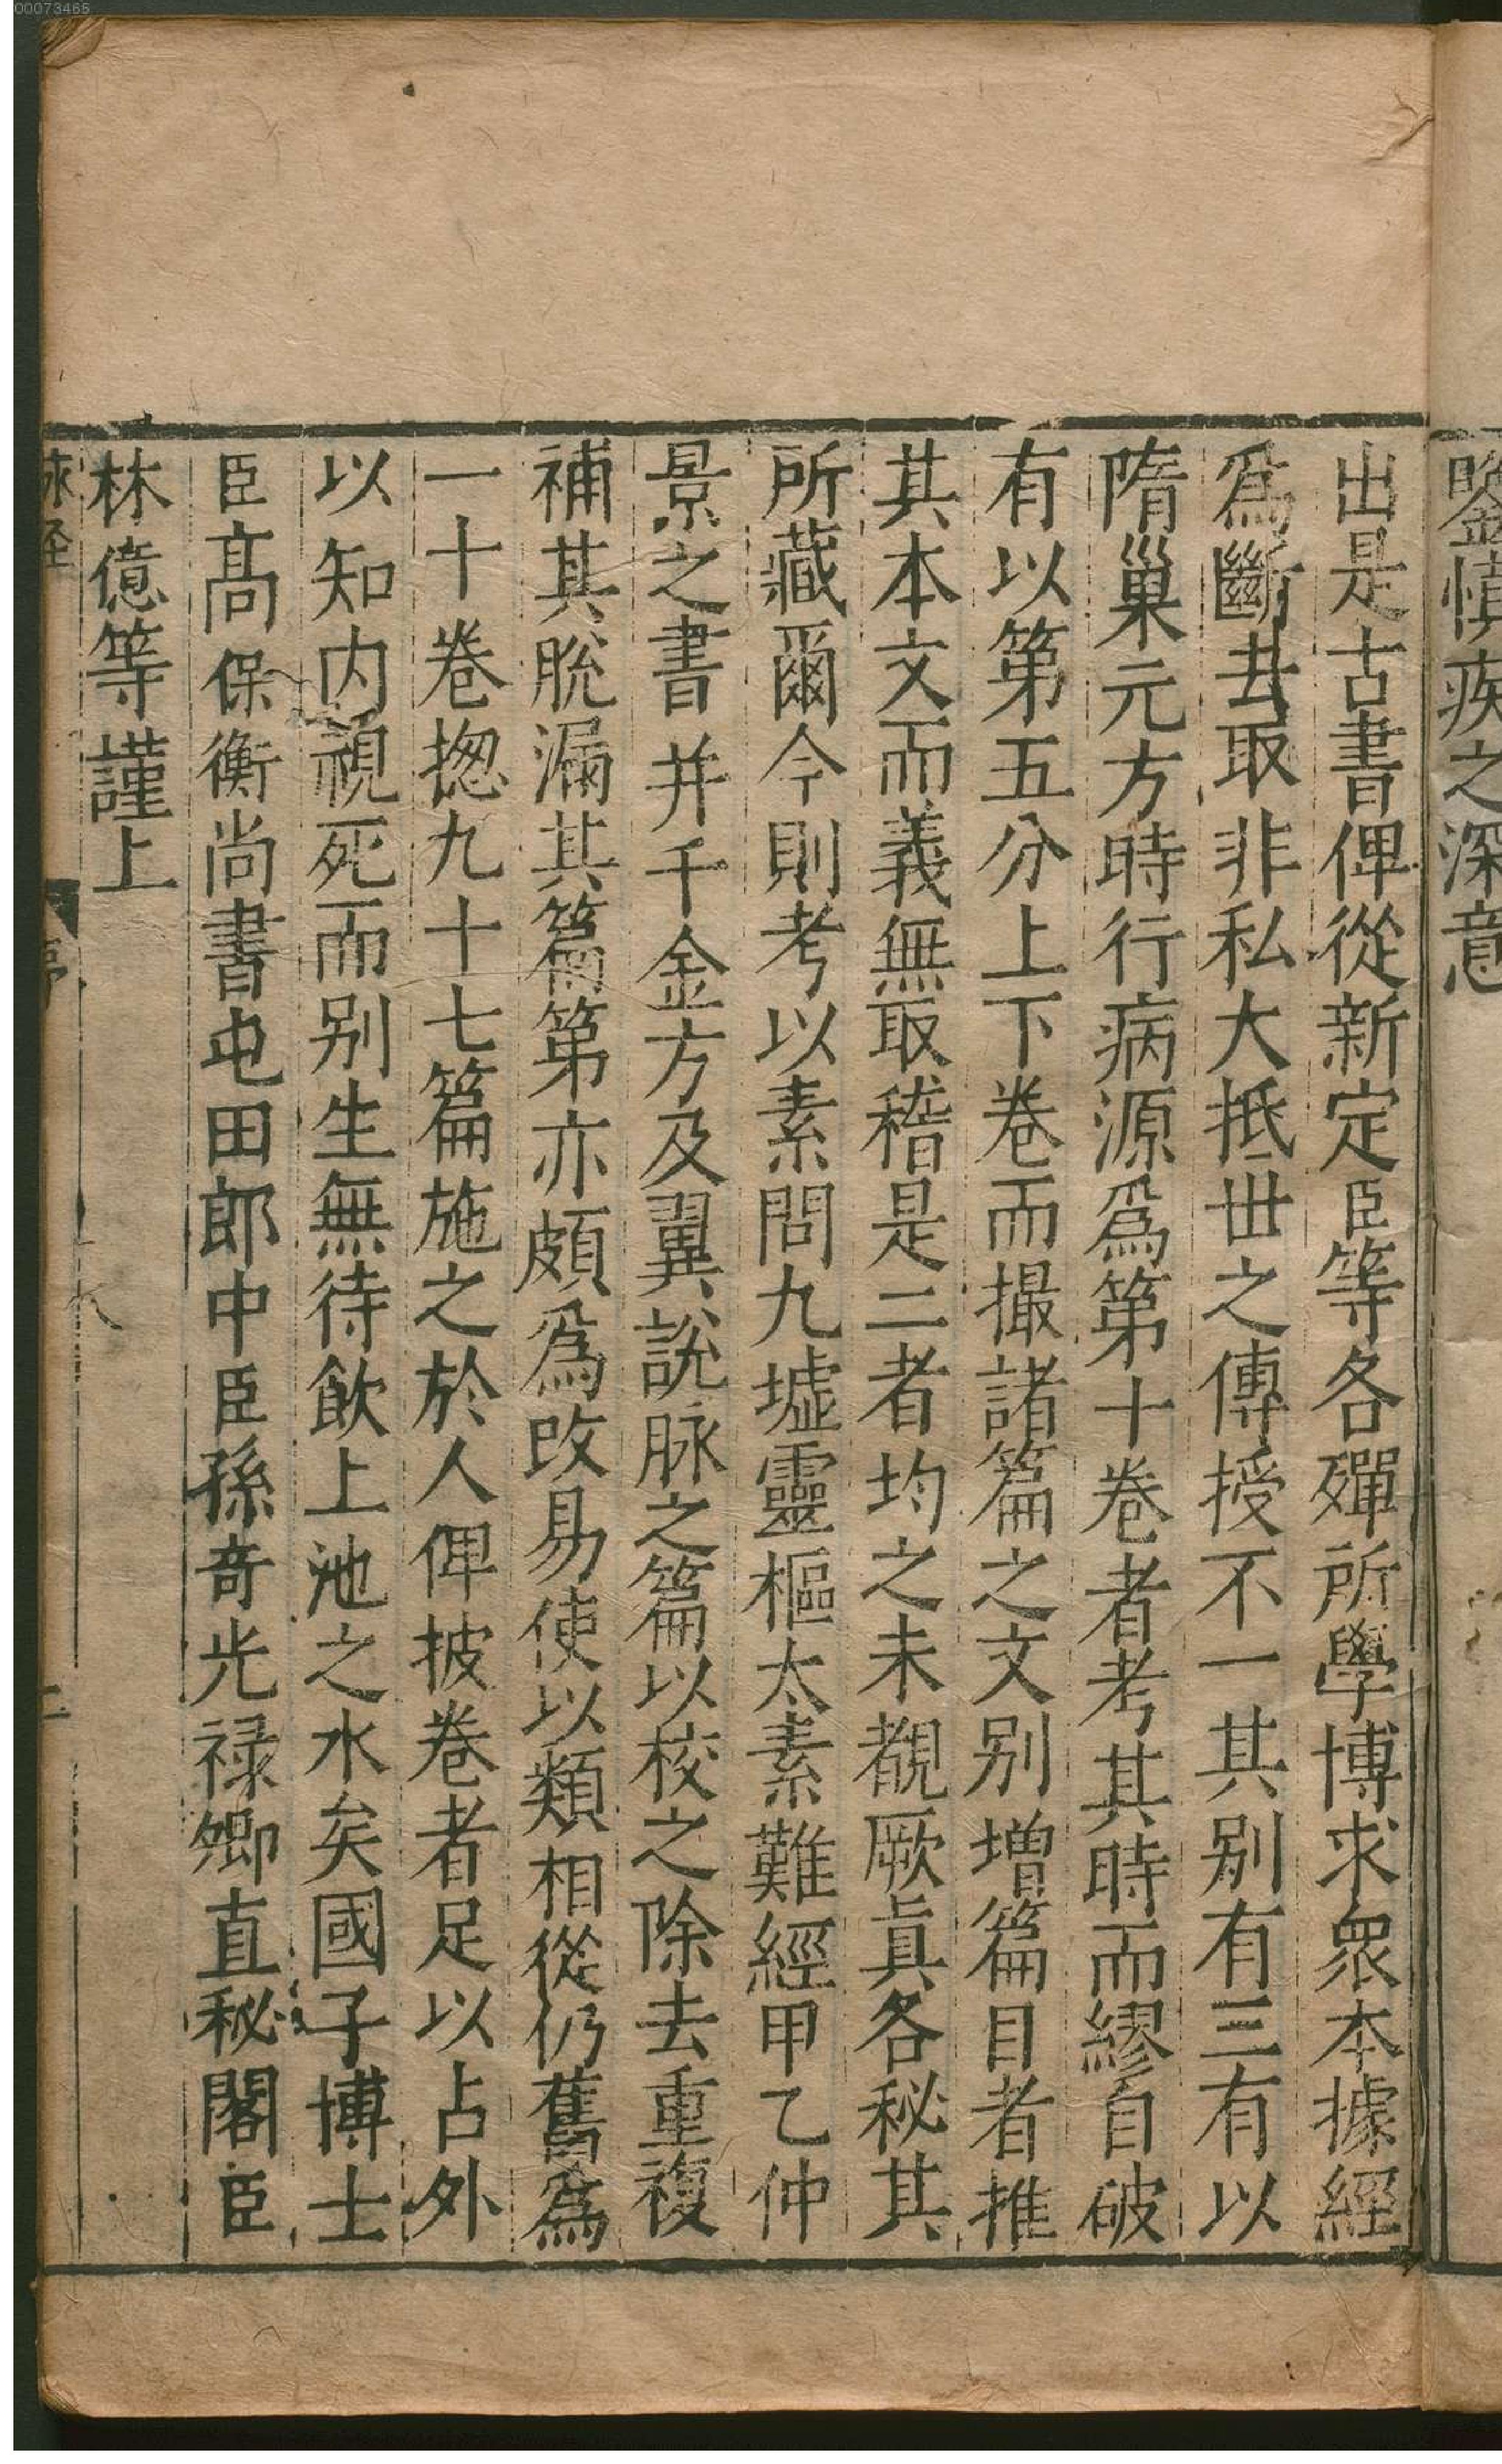 00073465
鑒慎疾之深意
出是古書俾從新定臣等各殫所學博求衆本據經
爲斷去取非私大抵世之傳授不一其别有三有以
隋巢元方時行病源爲第十卷者考其時而繆自破
有以第五分上下卷而撮諸篇之文别増篇目者推
其本文而義無取稽是二者均之未覩厥眞各秘其
所藏爾今則考以素問九墟靈樞太素難經甲乙仲
景之書并千金方及翼說脉之篇以校之除去重複
補其脫漏其篇第亦頗爲改易使以類相從仍舊爲
一十卷揔九十七篇施之於人俾披卷者足以占外
以知内視死而别生無待飲上池之水矣國子博士
臣髙保衡尚書屯田郎中臣孫竒光禄卿直秘閣臣
林億等謹上
脉経 序